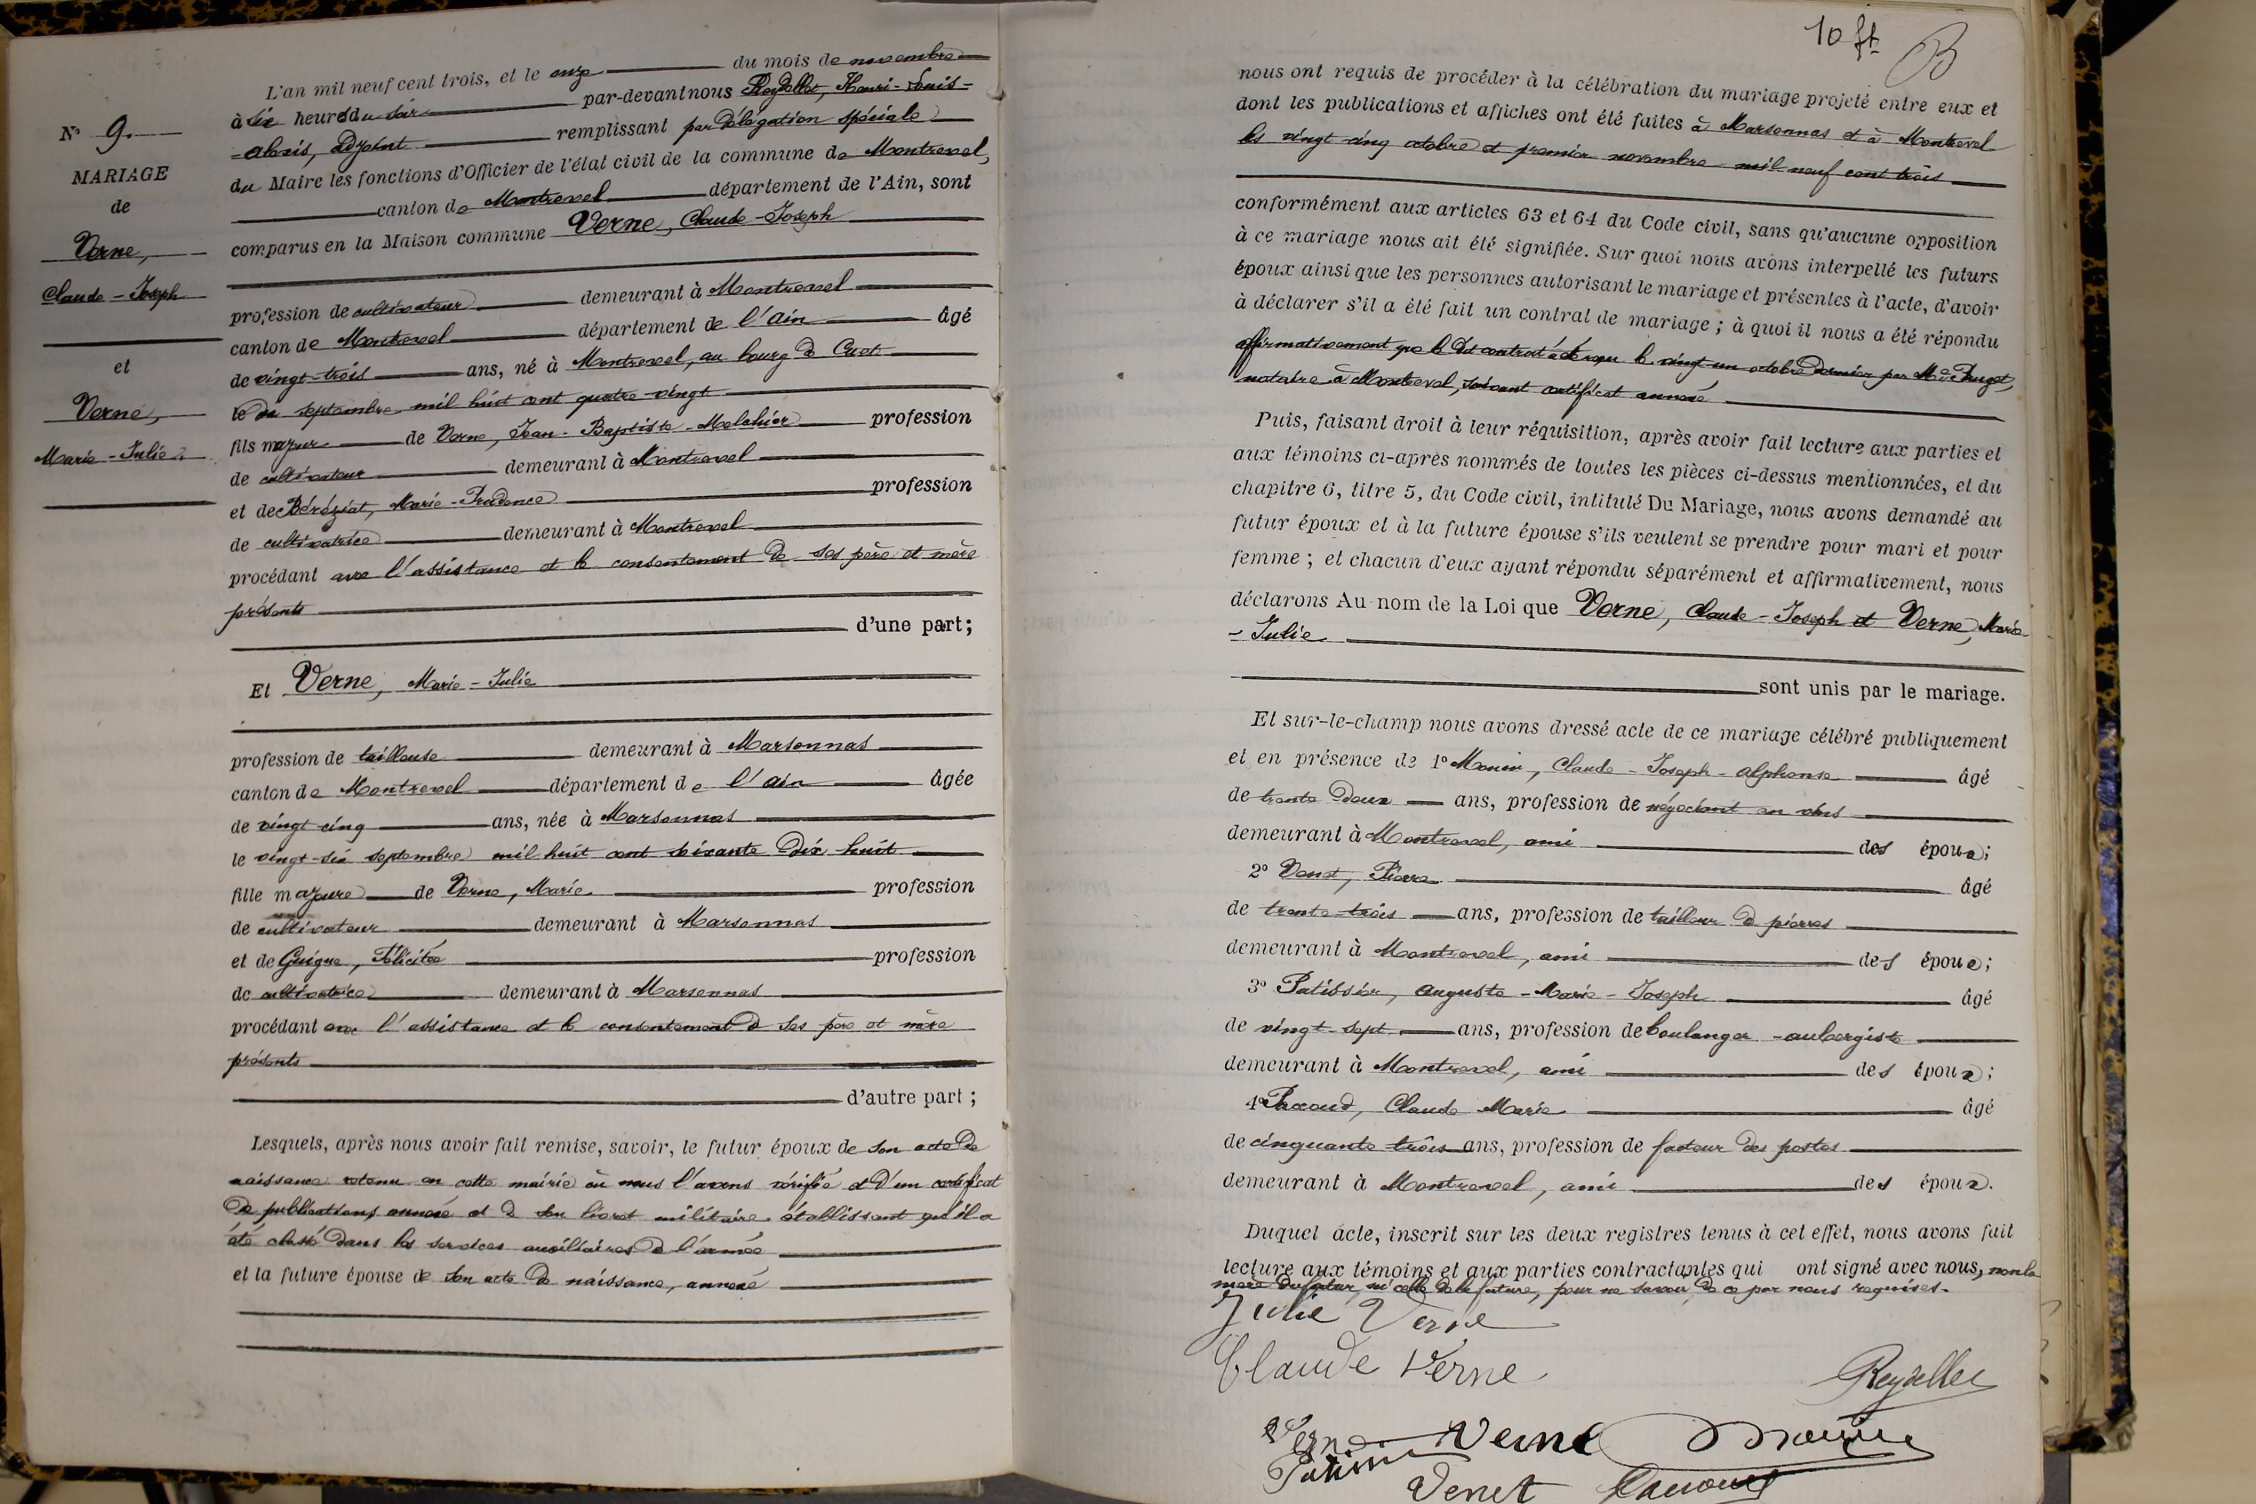 L'an mil neuf cent trois, et le onze du mois de novembre
à six heures du soir par-devant nous Reydellet, Henri-Louis-
-Alexis, adjoint remplissant par délégation spéciale
du Maire les fonctions d'Officier de l'état civil de la commune de Montrevel,
canton de Montrevel département de l'Ain, sont
comparus en la Maison commune Verne, Claude-Joseph
profession de cultivateur demeurant à Montrevel
canton de Montrevel département de l'Ain âgé
de vingt-trois ans, né à Montrevel, au bourg de Cuet
le septembre mil huit cent quatre-vingt
fils majeur de Verne, Jean-Baptiste-Melchior profession
de cultivateur demeurant à Montrevel
et de Béréziat, Marie-Prudence profession
de cultivatrice demeurant à Montrevel
procédant avec l'assistance et le consentement de ses père et mère
présents
d'une part;
Et Verne, Marie-Julie
profession de tailleuse demeurant à Marsonnas
canton de Montrevel département de l'Ain âgée
de vingt-cinq ans, née à Marsonnas
le vingt-six septembre mil huit cent soixante dix huit
fille majeure de Verne, Marie profession
de cultivateur demeurant à Marsonnas
et de Guigue, Félicitée profession
de cultivatrice demeurant à Marsonnas
procédant avec l'assistance et le consentement de ses père et mère
présents
d'autre part;
Lesquels, après nous avoir fait remise, savoir, le futur époux de son acte de
naissance retenu en cette mairie où nous l'avons vérifié et d'un certificat
de publications annexé et de son livret militaire établissant qu'il a
été classé dans les services auxiliaires de l'armée
et la future épouse de son acte de naissance, annexé
N° 9.
MARIAGE
de
Verne,
Claude-Joseph
et
Verne,
Marie-Julie
10 ft
B
nous ont requis de procéder à la célébration du mariage projeté entre eux et
dont les publications et affiches ont été faites à Marsonnas et à Montrevel
les vingt-cinq octobre et premier novembre mil neuf cent trois
conformément aux articles 63 et 64 du Code civil, sans qu'aucune opposition
à ce mariage nous ait été signifiée. Sur quoi nous avons interpellé les futurs
époux ainsi que les personnes autorisant le mariage et présentes à l'acte, d'avoir
à déclarer s'il a été fait un contrat de mariage; à quoi il nous a été répondu
affirmativement que le dit contrat a été reçu le vingt-un octobre dernier par Me Puget,
notaire à Montrevel, suivant certificat annexé
Puis, faisant droit à leur réquisition, après avoir fait lecture aux parties et
aux témoins ci-après nommés de toutes les pièces ci-dessus mentionnées, et du
chapitre 6, titre 5, du Code civil, intitulé Du Mariage, nous avons demandé au
futur époux et à la future épouse s'ils veulent se prendre pour mari et pour
femme; et chacun d'eux ayant répondu séparément et affirmativement, nous
déclarons Au nom de la Loi que Verne, Claude-Joseph et Verne, Marie-
-Julie
sont unis par le mariage.
Et sur-le-champ nous avons dressé acte de ce mariage célébré publiquement
et en présence de 1° Claude-Joseph-Alphonse âgé
de trente deux ans, profession de négociant en vins
demeurant à Montrevel, ami des époux;
2° Venet, Pierre âgé
de trente-trois ans, profession de tailleur de pierres
demeurant à Montrevel, ami des époux;
3° Patissier, Auguste-Marie-Joseph âgé
de vingt-sept ans, profession de boulanger-aubergiste
demeurant à Montrevel, ami des époux;
4° Pacoud, Claude Marie âgé
de cinquante trois ans, profession de facteur des postes
demeurant à Montrevel, ami des époux.
Duquel acte, inscrit sur les deux registres tenus à cet effet, nous avons fait
lecture aux témoins et aux parties contractantes qui ont signé avec nous, non la
mère du futur, ni celle de la future, pour ne savoir, de ce par nous requises.
Julie Verne
Claude Verne
Reydellet
Verne
Venet